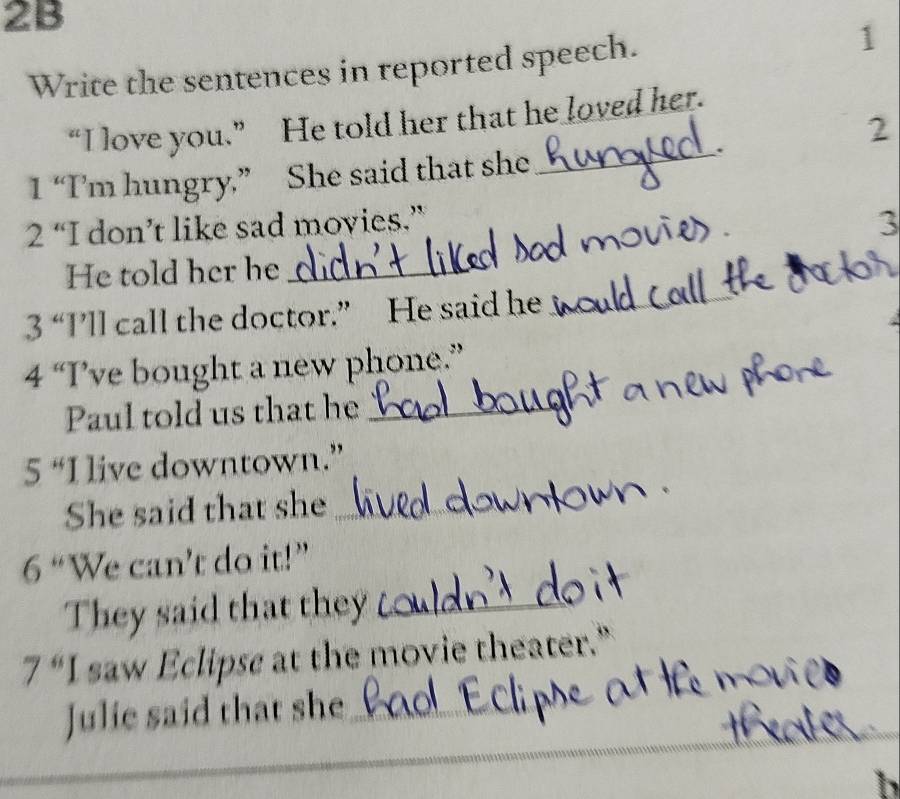 2B
Write the sentences in reported speech.
1
"I love you." He told her that he loved her.
2
1 "I'm hungry." She said that she hungred.
2 "I don't like sad movies."
3
He told her he didn't liked sad movies.
3 "I'll call the doctor." He said he would call the doctor
4 "I've bought a new phone."
Paul told us that he had bought a new phone
5 "I live downtown."
She said that she lived downtown.
6 "We can't do it!"
They said that they couldn't do it
7 "I saw Eclipse at the movie theater."
Julie said that she had Eclipse at the movie
theater.